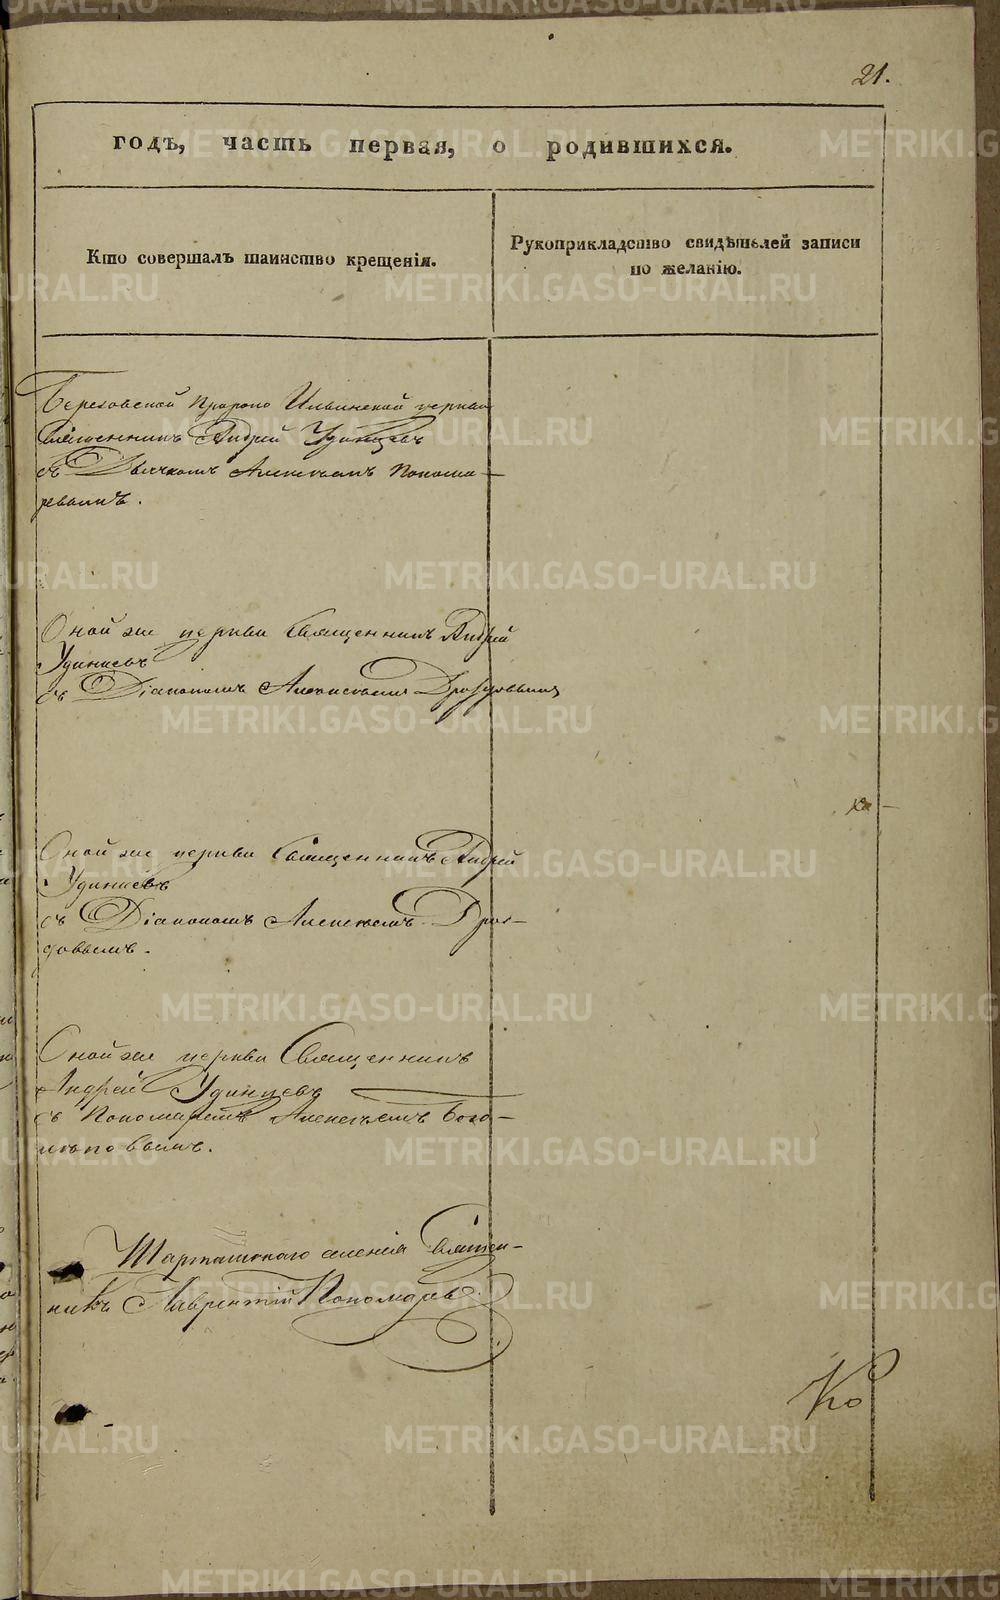 21.
годъ, часть первая, о родившихся.
Кто совершалъ таинство крещенія.
Рукоприкладство свидѣтелей записи
по желанію.
Березовской Пророко Ильинской церкви
Священникъ Андрей Удинцевъ
съ Дьячкомъ Алексѣемъ Понома-
ревымъ.
Оной же церкви Священникъ Андрей
Удинцевъ
съ Діакономъ Алексѣемъ Дроздовымъ
Оной же церкви Священникъ Андрей
Удинцевъ
съ Діакономъ Алексѣемъ Дроз-
довымъ.
Оной же церкви Священникъ
Андрей Удинцевъ
съ Пономаремъ Алексѣемъ Бого-
лѣповымъ.
Шарташскаго селенія Священ-
никъ Лаврентій Пономаревъ.
Ко
METRIKI.GASO-URAL.RU